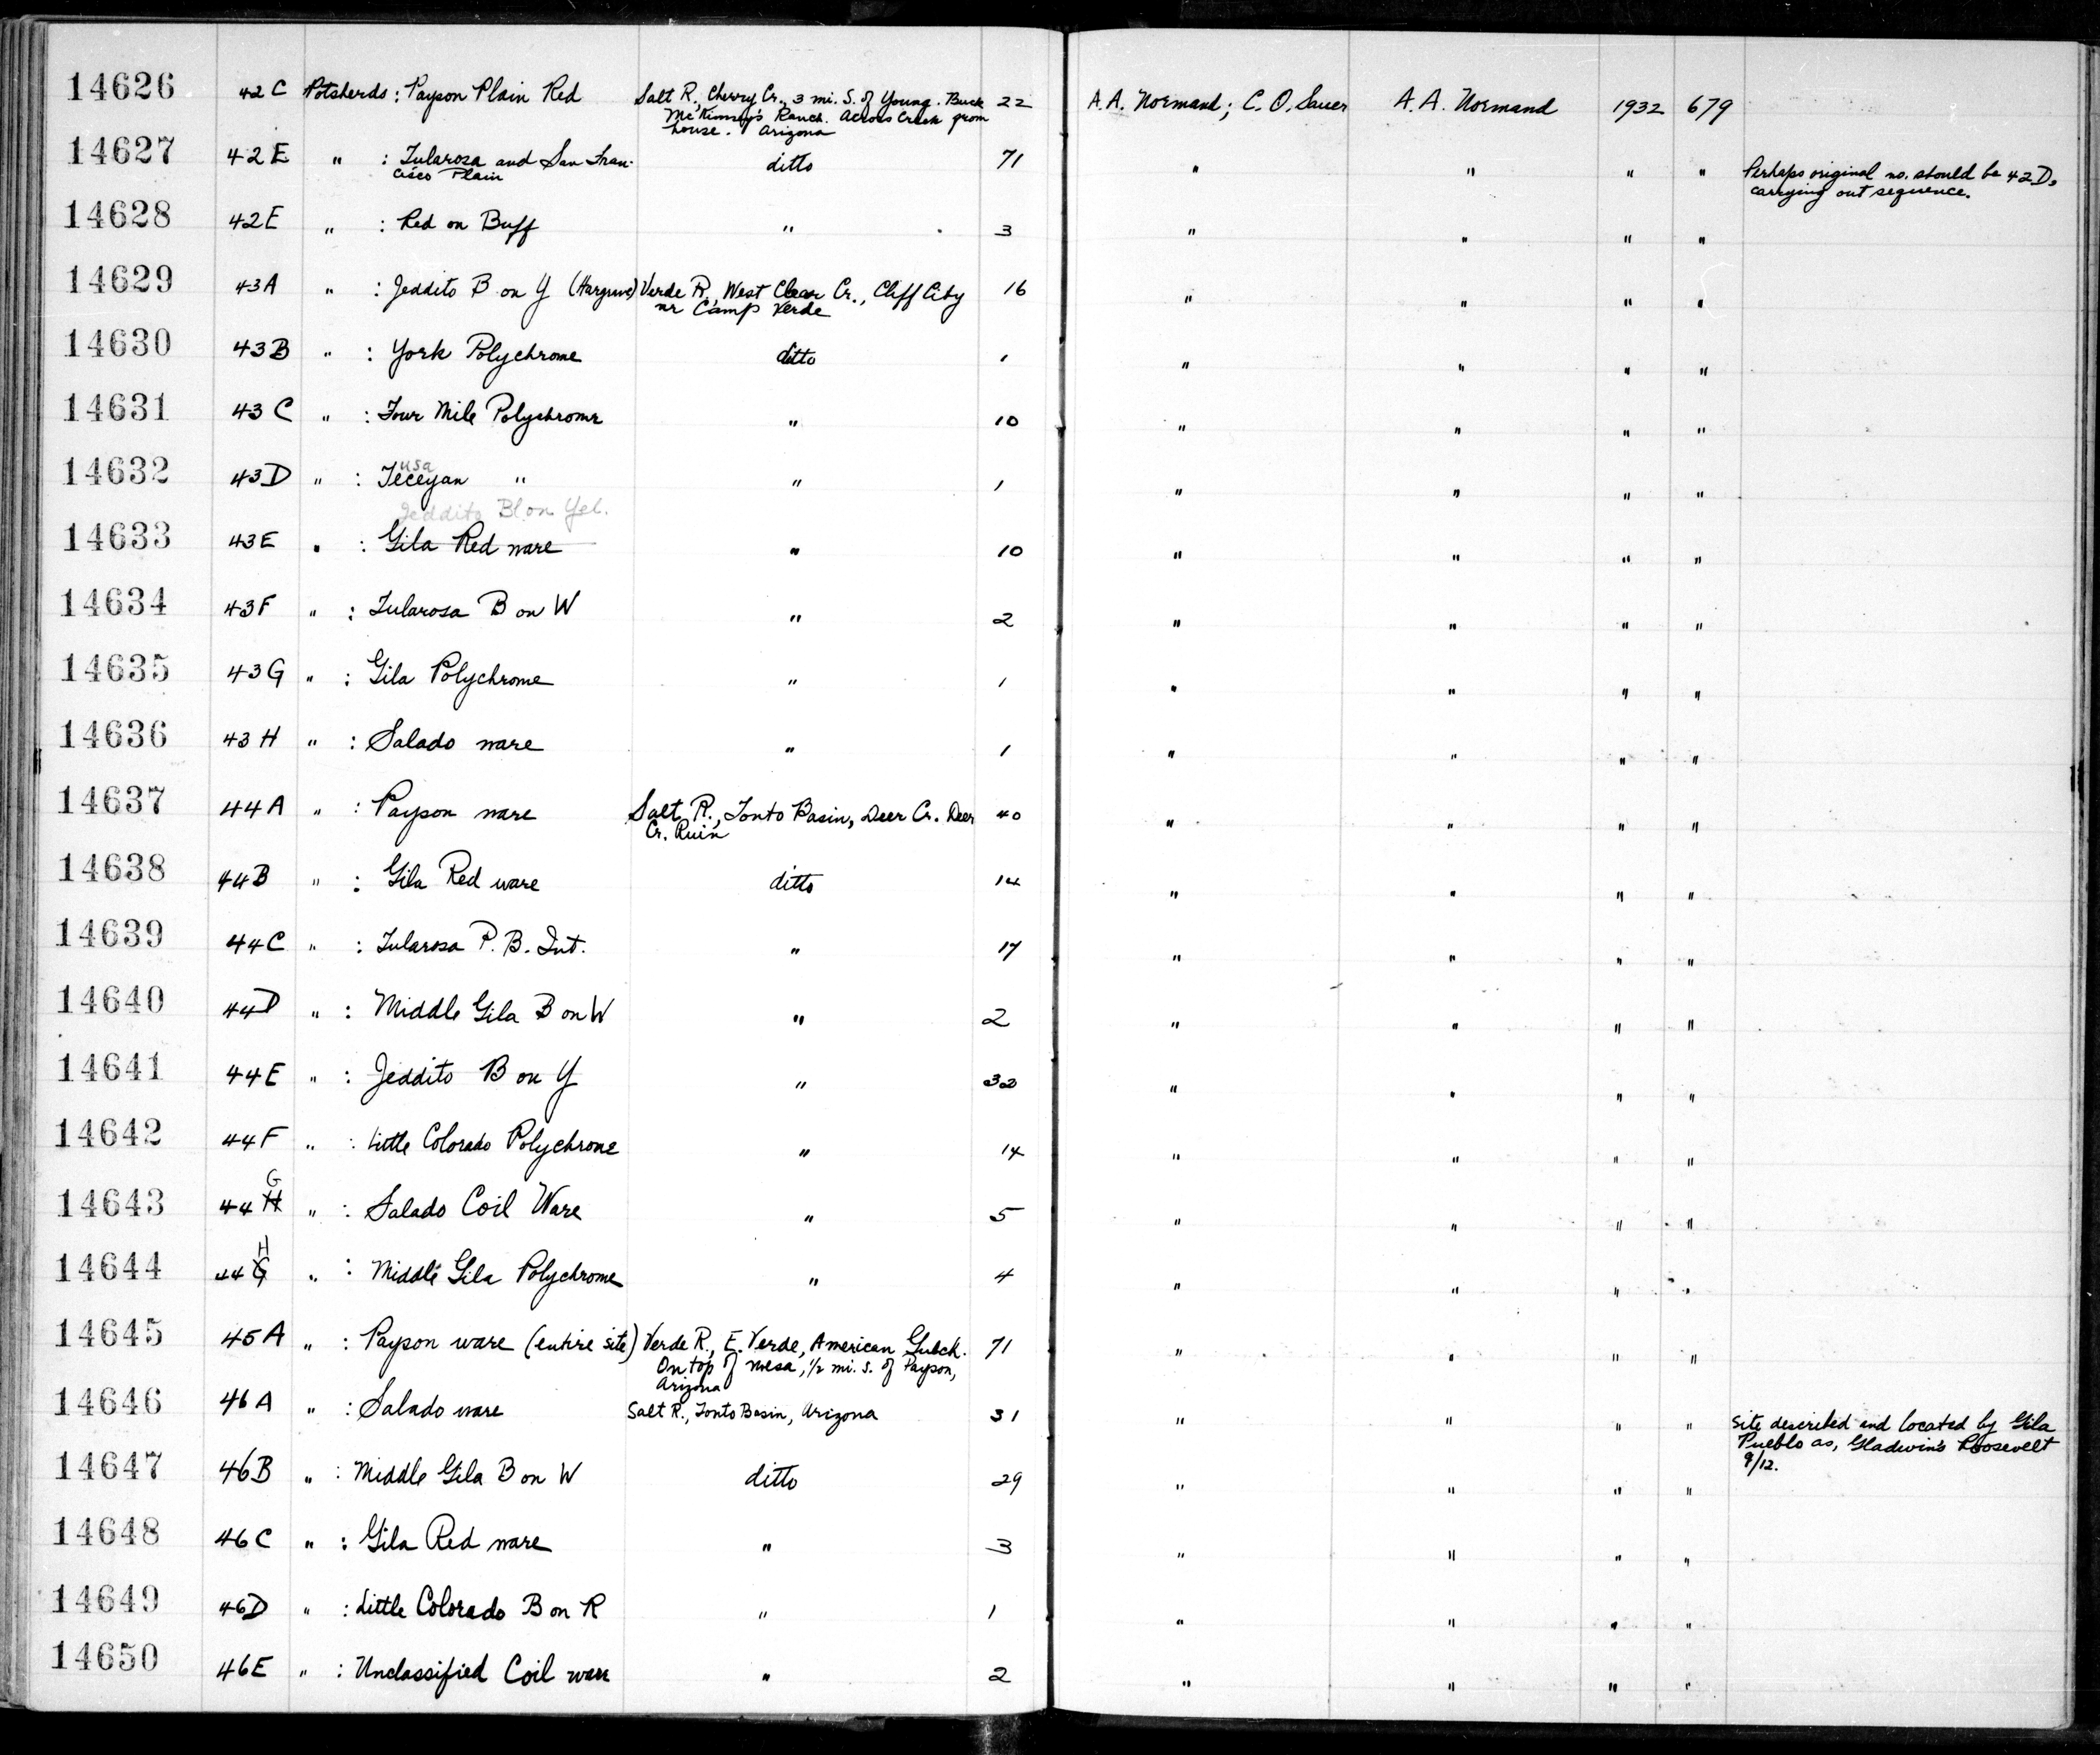 14626 42C Potsherds : Payson Plain Red Salt R., Cherry Cr., 3 mi. S. of Young. Buck 22 A.A. Normand; C. O. Sauer A. A. Normand 1932 679
Ranch. Across Creek from
house. Arizona
14627 42E " : Tularosa and San Fran- ditto 71 " " " " Perhaps original no. should be 42D,
cisco Plain carrying out sequence.
14628 42E " : Red on Buff " 3 " " " "
14629 43A " : Jeddito B on Y (Hargrave) Verde R., West Clear Cr., Cliff City 16 " " " "
nr Camp Verde
14630 43B " : York Polychrome ditto 1 " " " "
14631 43C " : Four Mile Polychrome " 10 " " " "
usa
14632 43D " : Teceyan " " 1 " " " "
Jeddito Bl on Yel.
14633 43E " : Gila Red ware " 10 " " " "
14634 43F " : Tularosa B on W " 2 " " " "
14635 43G " : Gila Polychrome " 1 " " " "
14636 43H " : Salado ware " 1 " " " "
14637 44A " : Payson ware Salt R., Tonto Basin, Deer Cr. Deer 40 " " " "
Cr. Ruin
14638 44B " : Gila Red ware ditto 14 " " " "
14639 44C " : Tularosa P. B. Int. " 17 " " " "
14640 44D " : Middle Gila B on W " 2 " " " "
14641 44E " : Jeddito B on Y " " " " "
14642 44F " : Little Colorado Polychrome " 14 " " " "
G
14643 44H " : Salado Coil Ware " 5 " " " "
H
14644 44G " : Middle Gila Polychrome " 4 " " " "
14645 45A " : Payson ware (entire site) Verde R., E. Verde, American Gulch. 71 " " " "
On top of mesa, 1/2 mi. S. of Payson,
Arizona
14646 46A " : Salado ware Salt R., Tonto Basin, Arizona 31 " " " " Site described and located by Gila
Pueblo as, Gladwin's Roosevelt
9/12.
14647 46B " : Middle Gila B on W ditto 29 " " " "
14648 46C " : Gila Red ware " 3 " " " "
14649 46D " : Little Colorado B on R " 1 " " " "
14650 46E " : Unclassified Coil ware " 2 " " " "